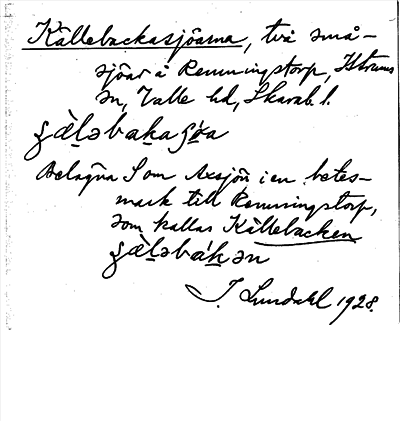 Källebackasjöarna, två små-
sjöar å Remmingstorp, Istrums
sn, Valle hd, Skarab. l.
Belägna S om Axsjön i en betes-
mark till Remmingstorp,
som kallas Källebacken
J. Lundahl 1928.